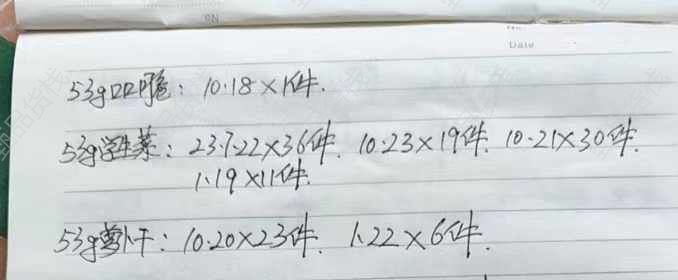 No
Date
53g口口脆：10.18×1件.
53g学生菜：23.7.22×36件. 10.23×19件. 10.21×30件.
1.19×11件.
53g萝卜干：10.20×23件. 1.22×6件.